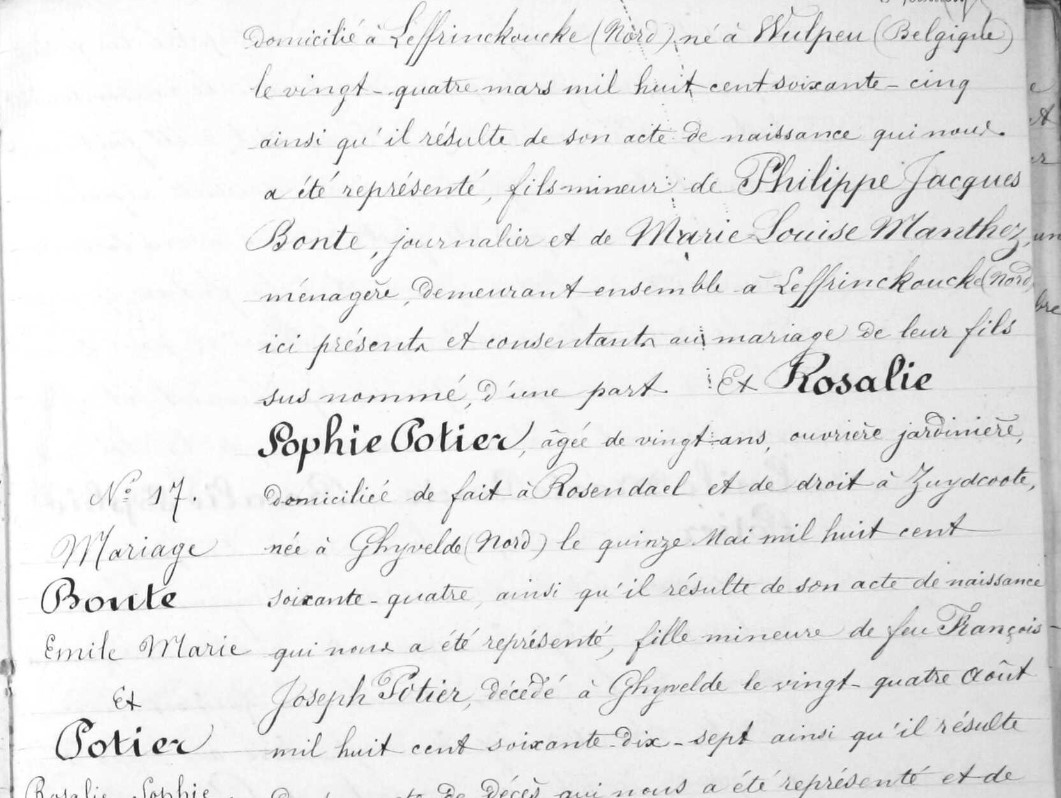 domicilié à Leffrinckoucke (Nord), né à Wulpen (Belgique)
le vingt-quatre mars mil huit cent soixante-cinq
ainsi qu'il résulte de son acte de naissance qui nous
a été représenté, fils mineur de Philippe Jacques
Bonte, journalier et de Marie-Louise Manthez,
ménagère, demeurant ensemble à Leffrinckoucke (Nord)
ici présents et consentants au mariage de leur fils
sus nommé, d'une part Et Rosalie
Sophie Potier, âgée de vingt ans, ouvrière jardinière,
domiciliée de fait à Rosendael et de droit à Zuydcoote,
née à Ghyvelde (Nord) le quinze Mai mil huit cent
soixante-quatre, ainsi qu'il résulte de son acte de naissance
qui nous a été représenté, fille mineure de feu François-
Joseph Potier, décédé à Ghyvelde le vingt-quatre Août
mil huit cent soixante-dix-sept ainsi qu'il résulte
de décès qui nous a été représenté et de
N° 17.
Mariage
Bonte
Emile Marie
Et
Potier
Rosalie Sophie